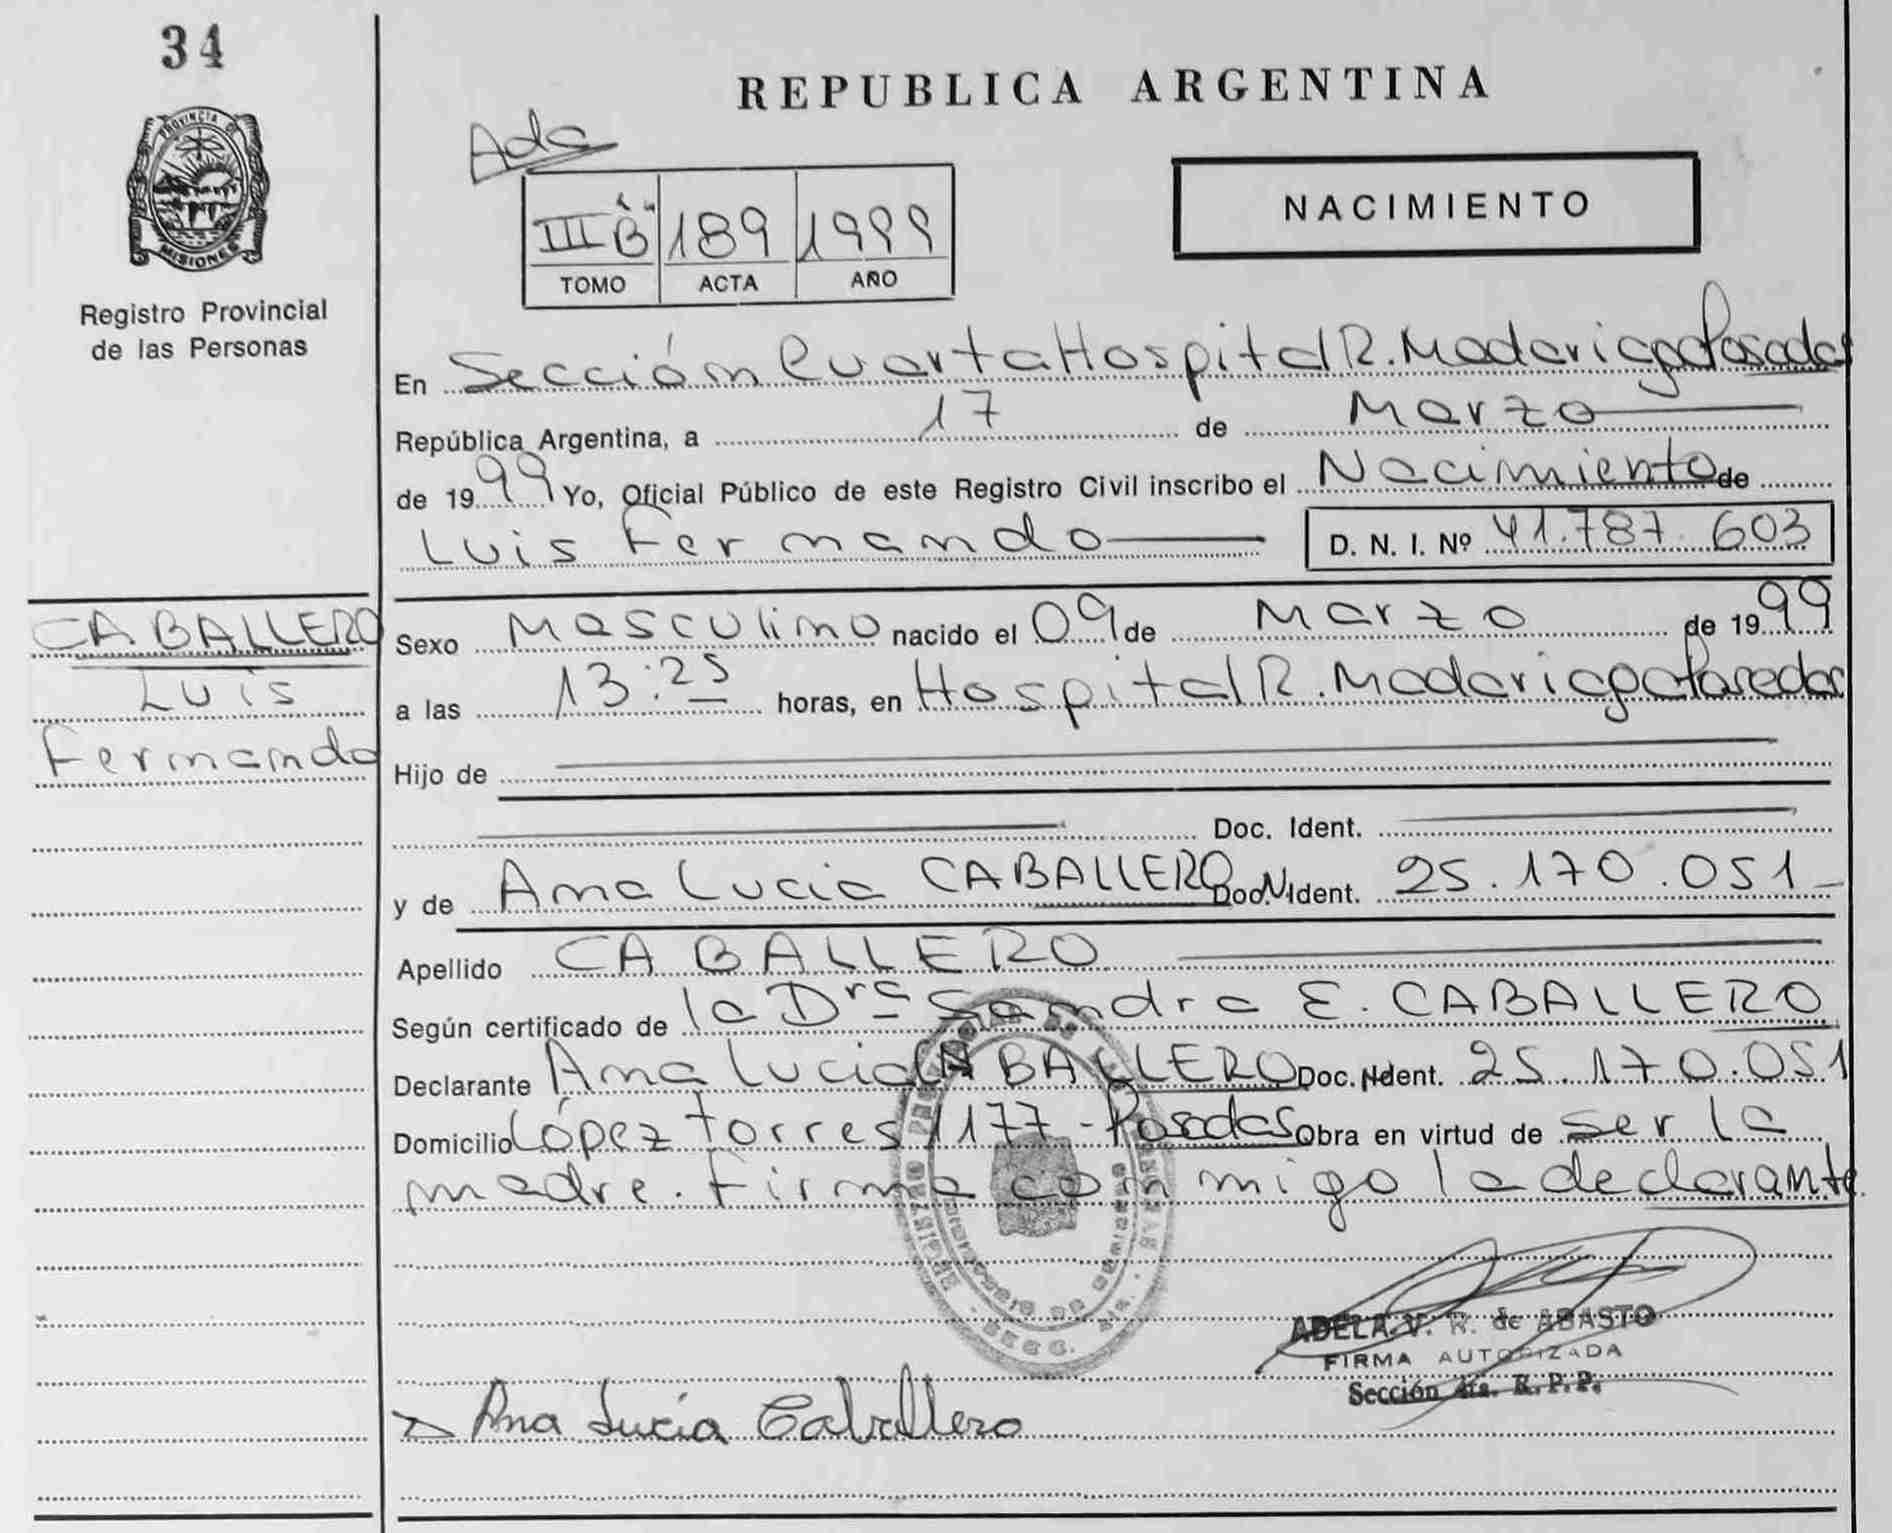 34
REPUBLICA ARGENTINA
PROVINCIA DE
MISIONES
Registro Provincial
de las Personas
Ada
III "B" 189 1999
TOMO ACTA AÑO
NACIMIENTO
En Sección Cuarta Hospital R. Madariaga Posadas
República Argentina, a 17 de Marzo
de 1999 Yo, Oficial Público de este Registro Civil inscribo el Nacimiento de
Luis Fernando D. N. I. Nº 41.787.603
CABALLERO
Luis
Fernando
Sexo Masculino nacido el 09 de Marzo de 1999
a las 13:25 horas, en Hospital R. Madariaga Posadas
Hijo de
Doc. Ident.
y de Ana Lucia CABALLERO Doc. Ident. 25.170.051
Apellido CABALLERO
Según certificado de la Dra Sandra E. CABALLERO
Declarante Ana Lucia CABALLERO Doc. Ident. 25.170.051
Domicilio López Torres 1177 - Posadas Obra en virtud de ser la
madre. Firma conmigo la declarante
ADELA V. R. de ABASTO
FIRMA AUTORIZADA
Sección 4ta. R. P. P.
Ana Lucía Caballero